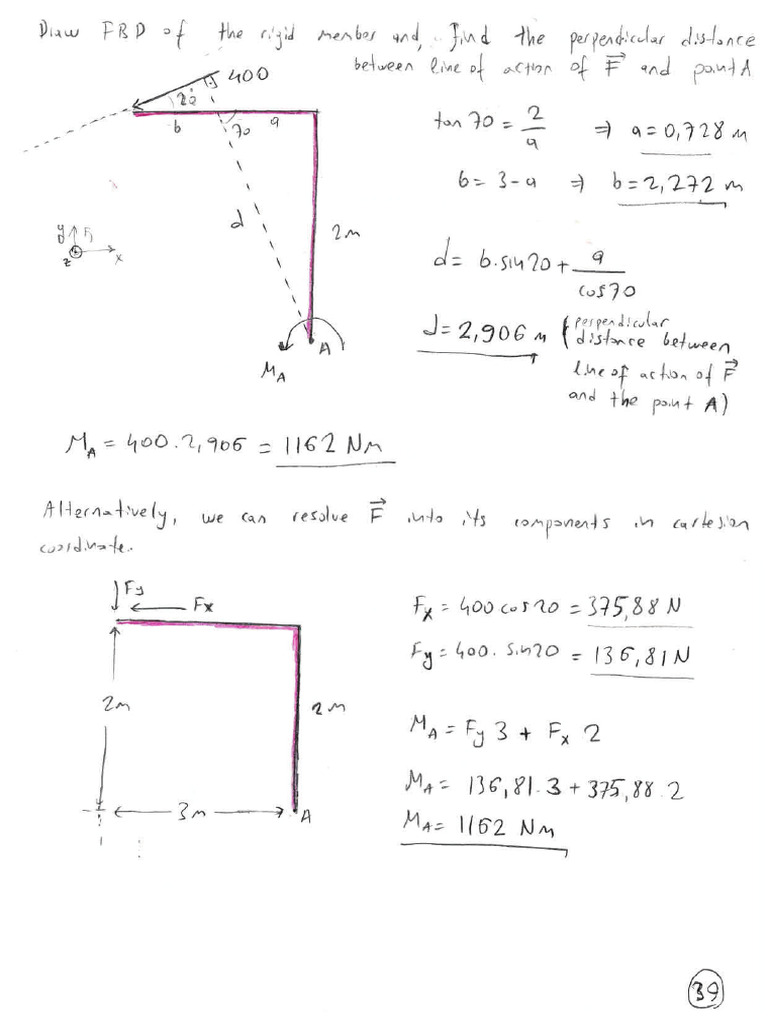 Draw FBD of the rigid member and, find the perpendicular distance
between line of action of F⃗ and point A
400
20°
b 70 a
d
2m
y
z x
A
M_A
tan 70 = 2/a ⇒ a = 0,728 m
b = 3 - a ⇒ b = 2,272 m
d = b.sin20 + a/cos70
d = 2,906 m (perpendicular
distance between
line of action of F⃗
and the point A)
M_A = 400.2,906 = 1162 Nm
Alternatively, we can resolve F⃗ into its components in cartesian
coordinate.
Fy
Fx
2m
2m
3m
A
Fx = 400 cos20 = 375,88 N
Fy = 400. sin20 = 136,81 N
M_A = Fy 3 + Fx 2
M_A = 136,81.3 + 375,88.2
M_A = 1162 Nm
39